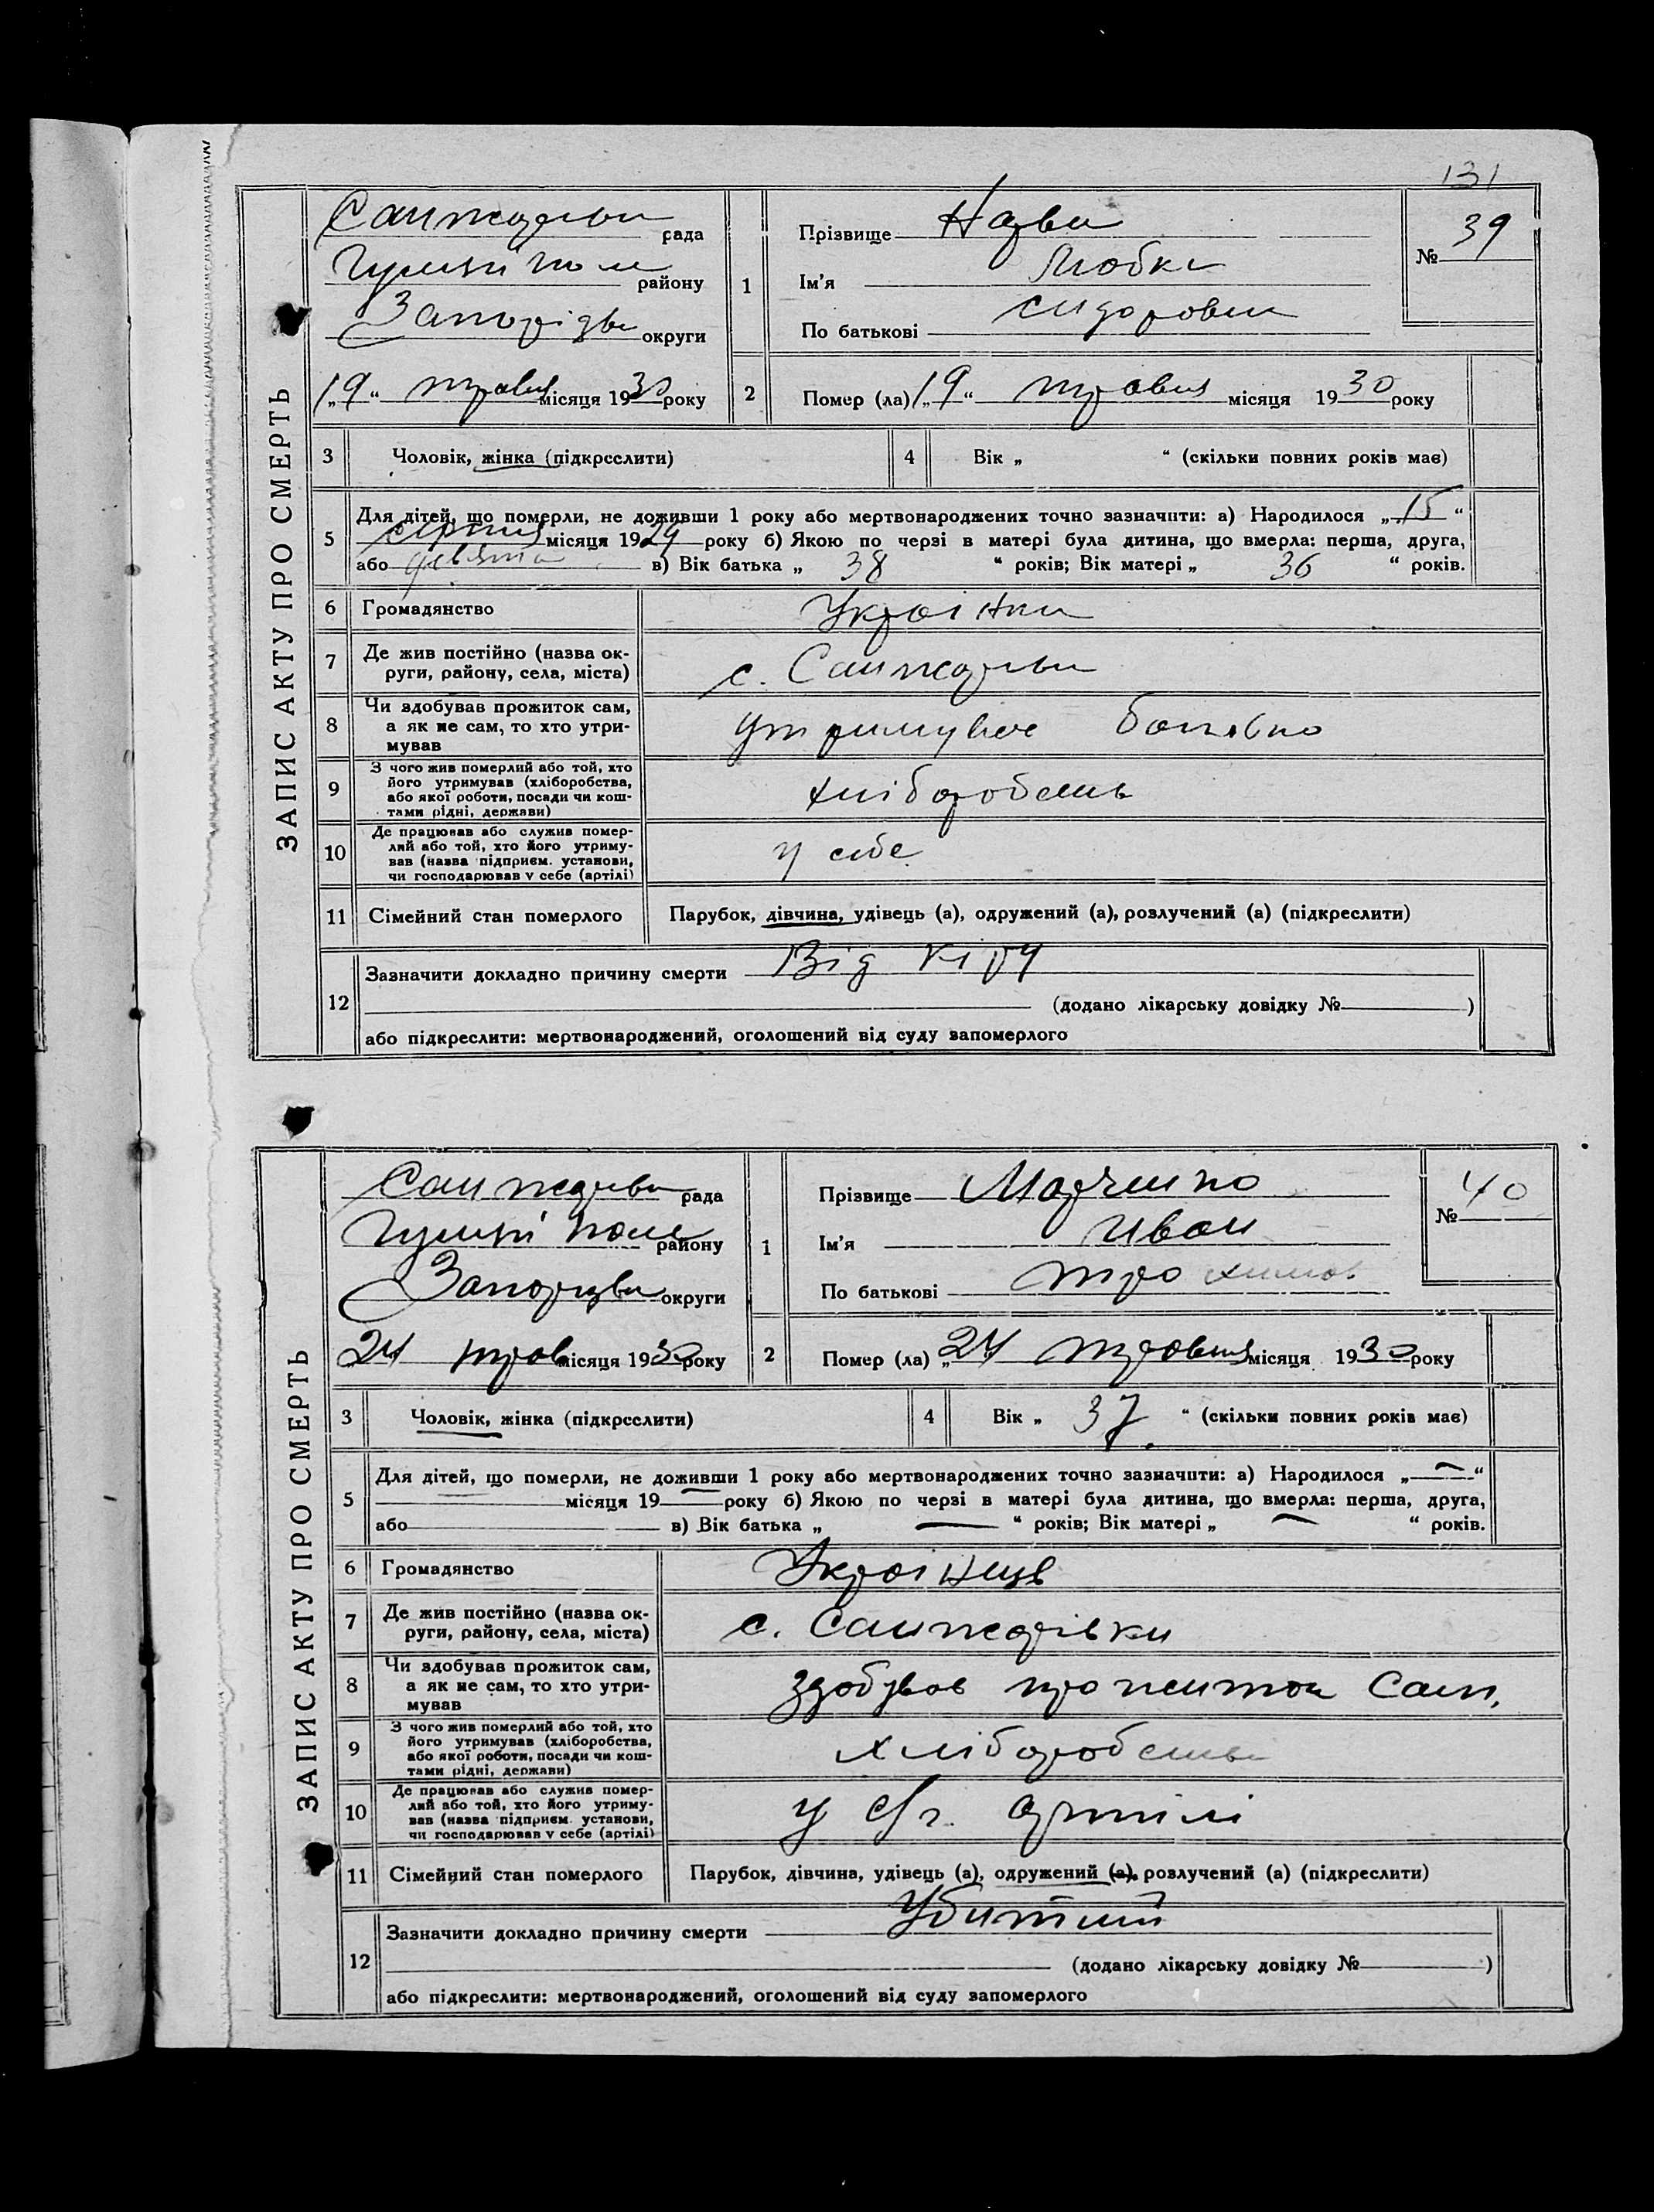 131
ЗАПИС АКТУ ПРО СМЕРТЬ
рада
району
округи
1
Прізвище
Ім'я Любка
По батькові Сидоровна
№ 39
„19“ травня місяця 1930 року
2
Помер (ла) „19“ травня місяця 1930 року
3 Чоловік, жінка (підкреслити)
4 Вік „ “ (скільки повних років має)
5 Для дітей, що померли, не доживши 1 року або мертвонароджених точно зазначити: а) Народилося „15“
серпня місяця 1929 року б) Якою по черзі в матері була дитина, що вмерла: перша, друга,
або девята в) Вік батька „ 38 “ років; Вік матері „ 36 “ років.
6 Громадянство Українка
7 Де жив постійно (назва ок-
руги, району, села, міста) с.
8 Чи здобував прожиток сам,
а як не сам, то хто утри-
мував
батько
9 З чого жив померлий або той, хто
його утримував (хліборобства,
або якої роботи, посади чи кош-
тами рідні, держави)
10 Де працював або служив помер-
лий або той, хто його утриму-
вав (назва підприєм. установи,
чи господарював у себе (артілі)
у себе
11 Сімейний стан померлого Парубок, дівчина, удівець (а), одружений (а), розлучений (а) (підкреслити)
12 Зазначити докладно причину смерти Від кіру
(додано лікарську довідку № )
або підкреслити: мертвонароджений, оголошений від суду запомерлого
ЗАПИС АКТУ ПРО СМЕРТЬ
рада
району
округи
1
Прізвище Марченко
Ім'я Иван
По батькові Трохимов.
№ 40
24 трав місяця 1930 року
2
Помер (ла) „24 травня місяця 1930 року
3 Чоловік, жінка (підкреслити)
4 Вік „ 37 “ (скільки повних років має)
5 Для дітей, що померли, не доживши 1 року або мертвонароджених точно зазначити: а) Народилося „—“
місяця 19— року б) Якою по черзі в матері була дитина, що вмерла: перша, друга,
або в) Вік батька „ — “ років; Вік матері „ — “ років.
6 Громадянство Українць
7 Де жив постійно (назва ок-
руги, району, села, міста) с. Санжарівки
8 Чи здобував прожиток сам,
а як не сам, то хто утри-
мував
здобував прожиток сам.
9 З чого жив померлий або той, хто
його утримував (хліборобства,
або якої роботи, посади чи кош-
тами рідні, держави)
10 Де працював або служив помер-
лий або той, хто його утриму-
вав (назва підприєм. установи,
чи господарював у себе (артілі)
у с/г. артілі
11 Сімейний стан померлого Парубок, дівчина, удівець (а), одружений (а), розлучений (а) (підкреслити)
12 Зазначити докладно причину смерти Убитий
(додано лікарську довідку № )
або підкреслити: мертвонароджений, оголошений від суду запомерлого